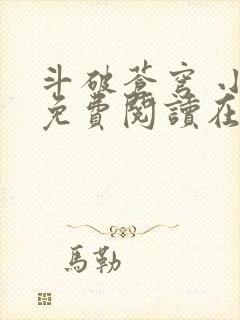 斗破蒼穹
免費閱讀在
馬勒